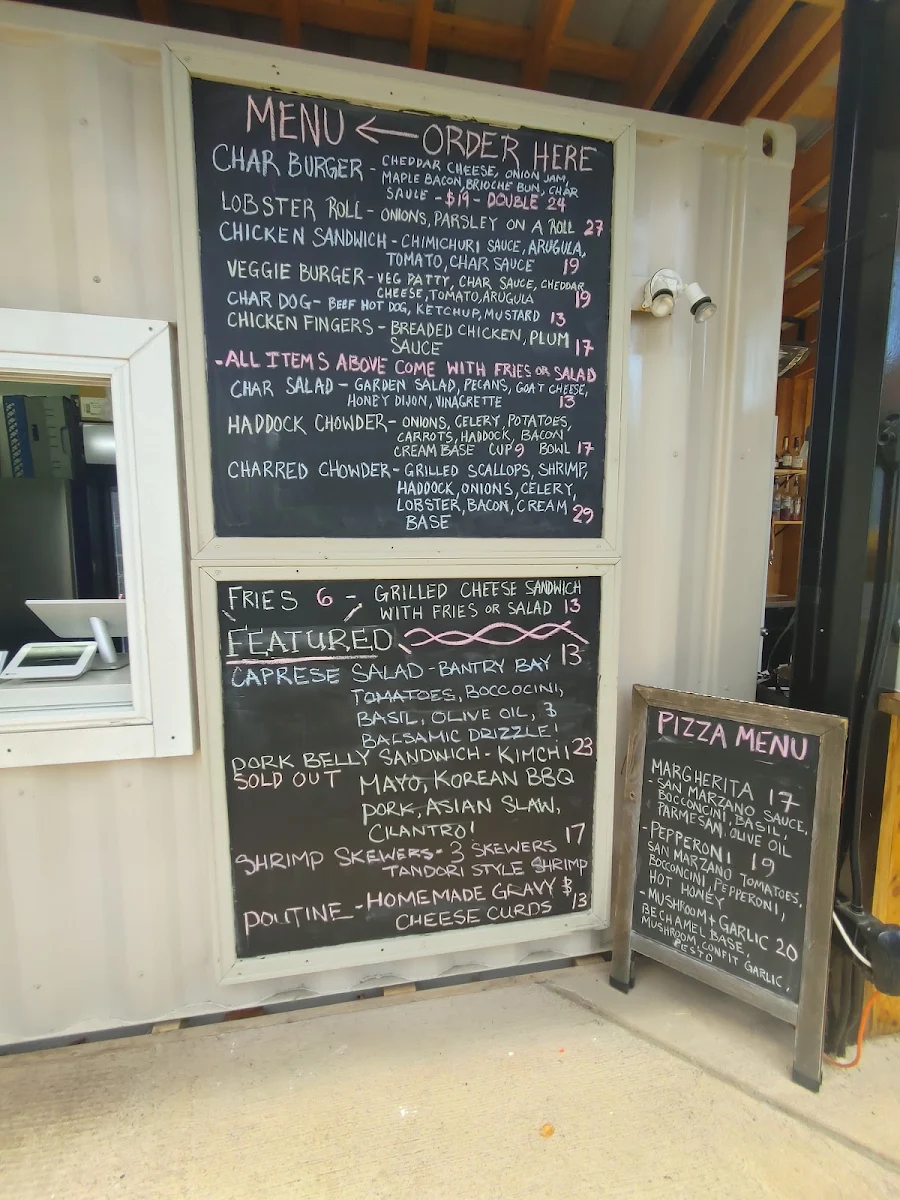 MENU ← ORDER HERE
CHAR BURGER - CHEDDAR CHEESE, ONION JAM,
MAPLE BACON, BRIOCHE BUN, CHAR
SAUCE - $19 - DOUBLE 24
LOBSTER ROLL - ONIONS, PARSLEY ON A ROLL 27
CHICKEN SANDWICH - CHIMICHURI SAUCE, ARUGULA,
TOMATO, CHAR SAUCE 19
VEGGIE BURGER - VEG PATTY, CHAR SAUCE, CHEDDAR
CHEESE, TOMATO, ARUGULA 19
CHAR DOG - BEEF HOT DOG, KETCHUP, MUSTARD 13
CHICKEN FINGERS - BREADED CHICKEN, PLUM
SAUCE 17
- ALL ITEMS ABOVE COME WITH FRIES OR SALAD
CHAR SALAD - GARDEN SALAD, PECANS, GOAT CHEESE,
HONEY DIJON, VINAGRETTE 13
HADDOCK CHOWDER - ONIONS, CELERY, POTATOES,
CARROTS, HADDOCK, BACON
CREAM BASE CUP 9 BOWL 17
CHARRED CHOWDER - GRILLED SCALLOPS, SHRIMP,
HADDOCK, ONIONS, CELERY,
LOBSTER, BACON, CREAM 29
BASE
FRIES 6 - GRILLED CHEESE SANDWICH
WITH FRIES OR SALAD 13
FEATURED
CAPRESE SALAD - BANTRY BAY 13
TOMATOES, BOCCOCINI,
BASIL, OLIVE OIL, &
BALSAMIC DRIZZLE!
PORK BELLY SANDWICH - KIMCHI 23
SOLD OUT MAYO, KOREAN BBQ
PORK, ASIAN SLAW,
CILANTRO!
SHRIMP SKEWERS - 3 SKEWERS 17
TANDORI STYLE SHRIMP
POUTINE - HOMEMADE GRAVY &
CHEESE CURDS 13
PIZZA MENU
MARGHERITA 17
- SAN MARZANO SAUCE,
BOCCONCINI, BASIL,
PARMESAN, OLIVE OIL
- PEPPERONI 19
SAN MARZANO TOMATOES,
BOCCONCINI, PEPPERONI,
HOT HONEY
- MUSHROOM + GARLIC 20
BECHAMEL BASE,
MUSHROOM, CONFIT GARLIC,
PESTO